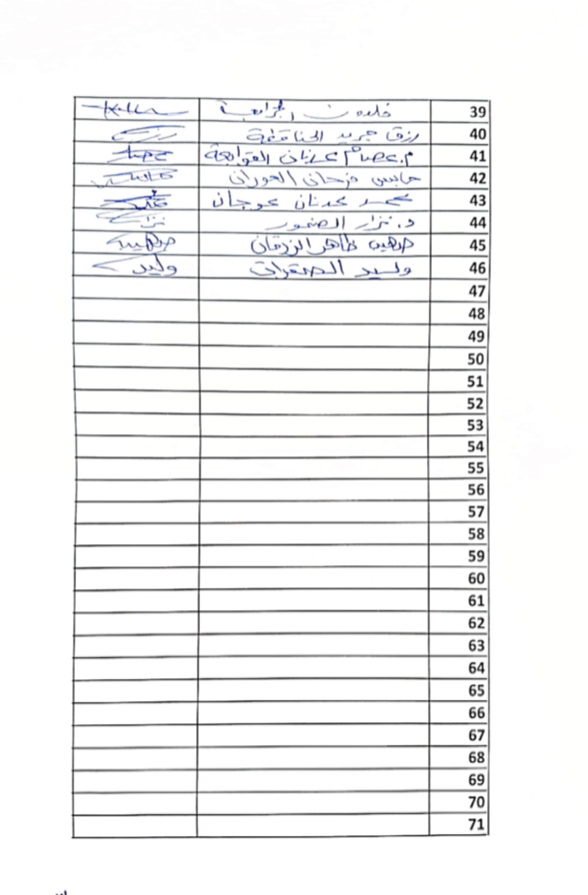 39 خلدون الجرابعة
40 رزق جريد الخنافطة
41 م. عصام عدنان الفواجعة
42 حابس فرحان الحوراني
43 محمد عدنان عوجان
44 د. نزار الضمور نزار
45 صهيب ظاهر الزرقان صهيب
46 وليد الصقرات وليد
47
48
49
50
51
52
53
54
55
56
57
58
59
60
61
62
63
64
65
66
67
68
69
70
71